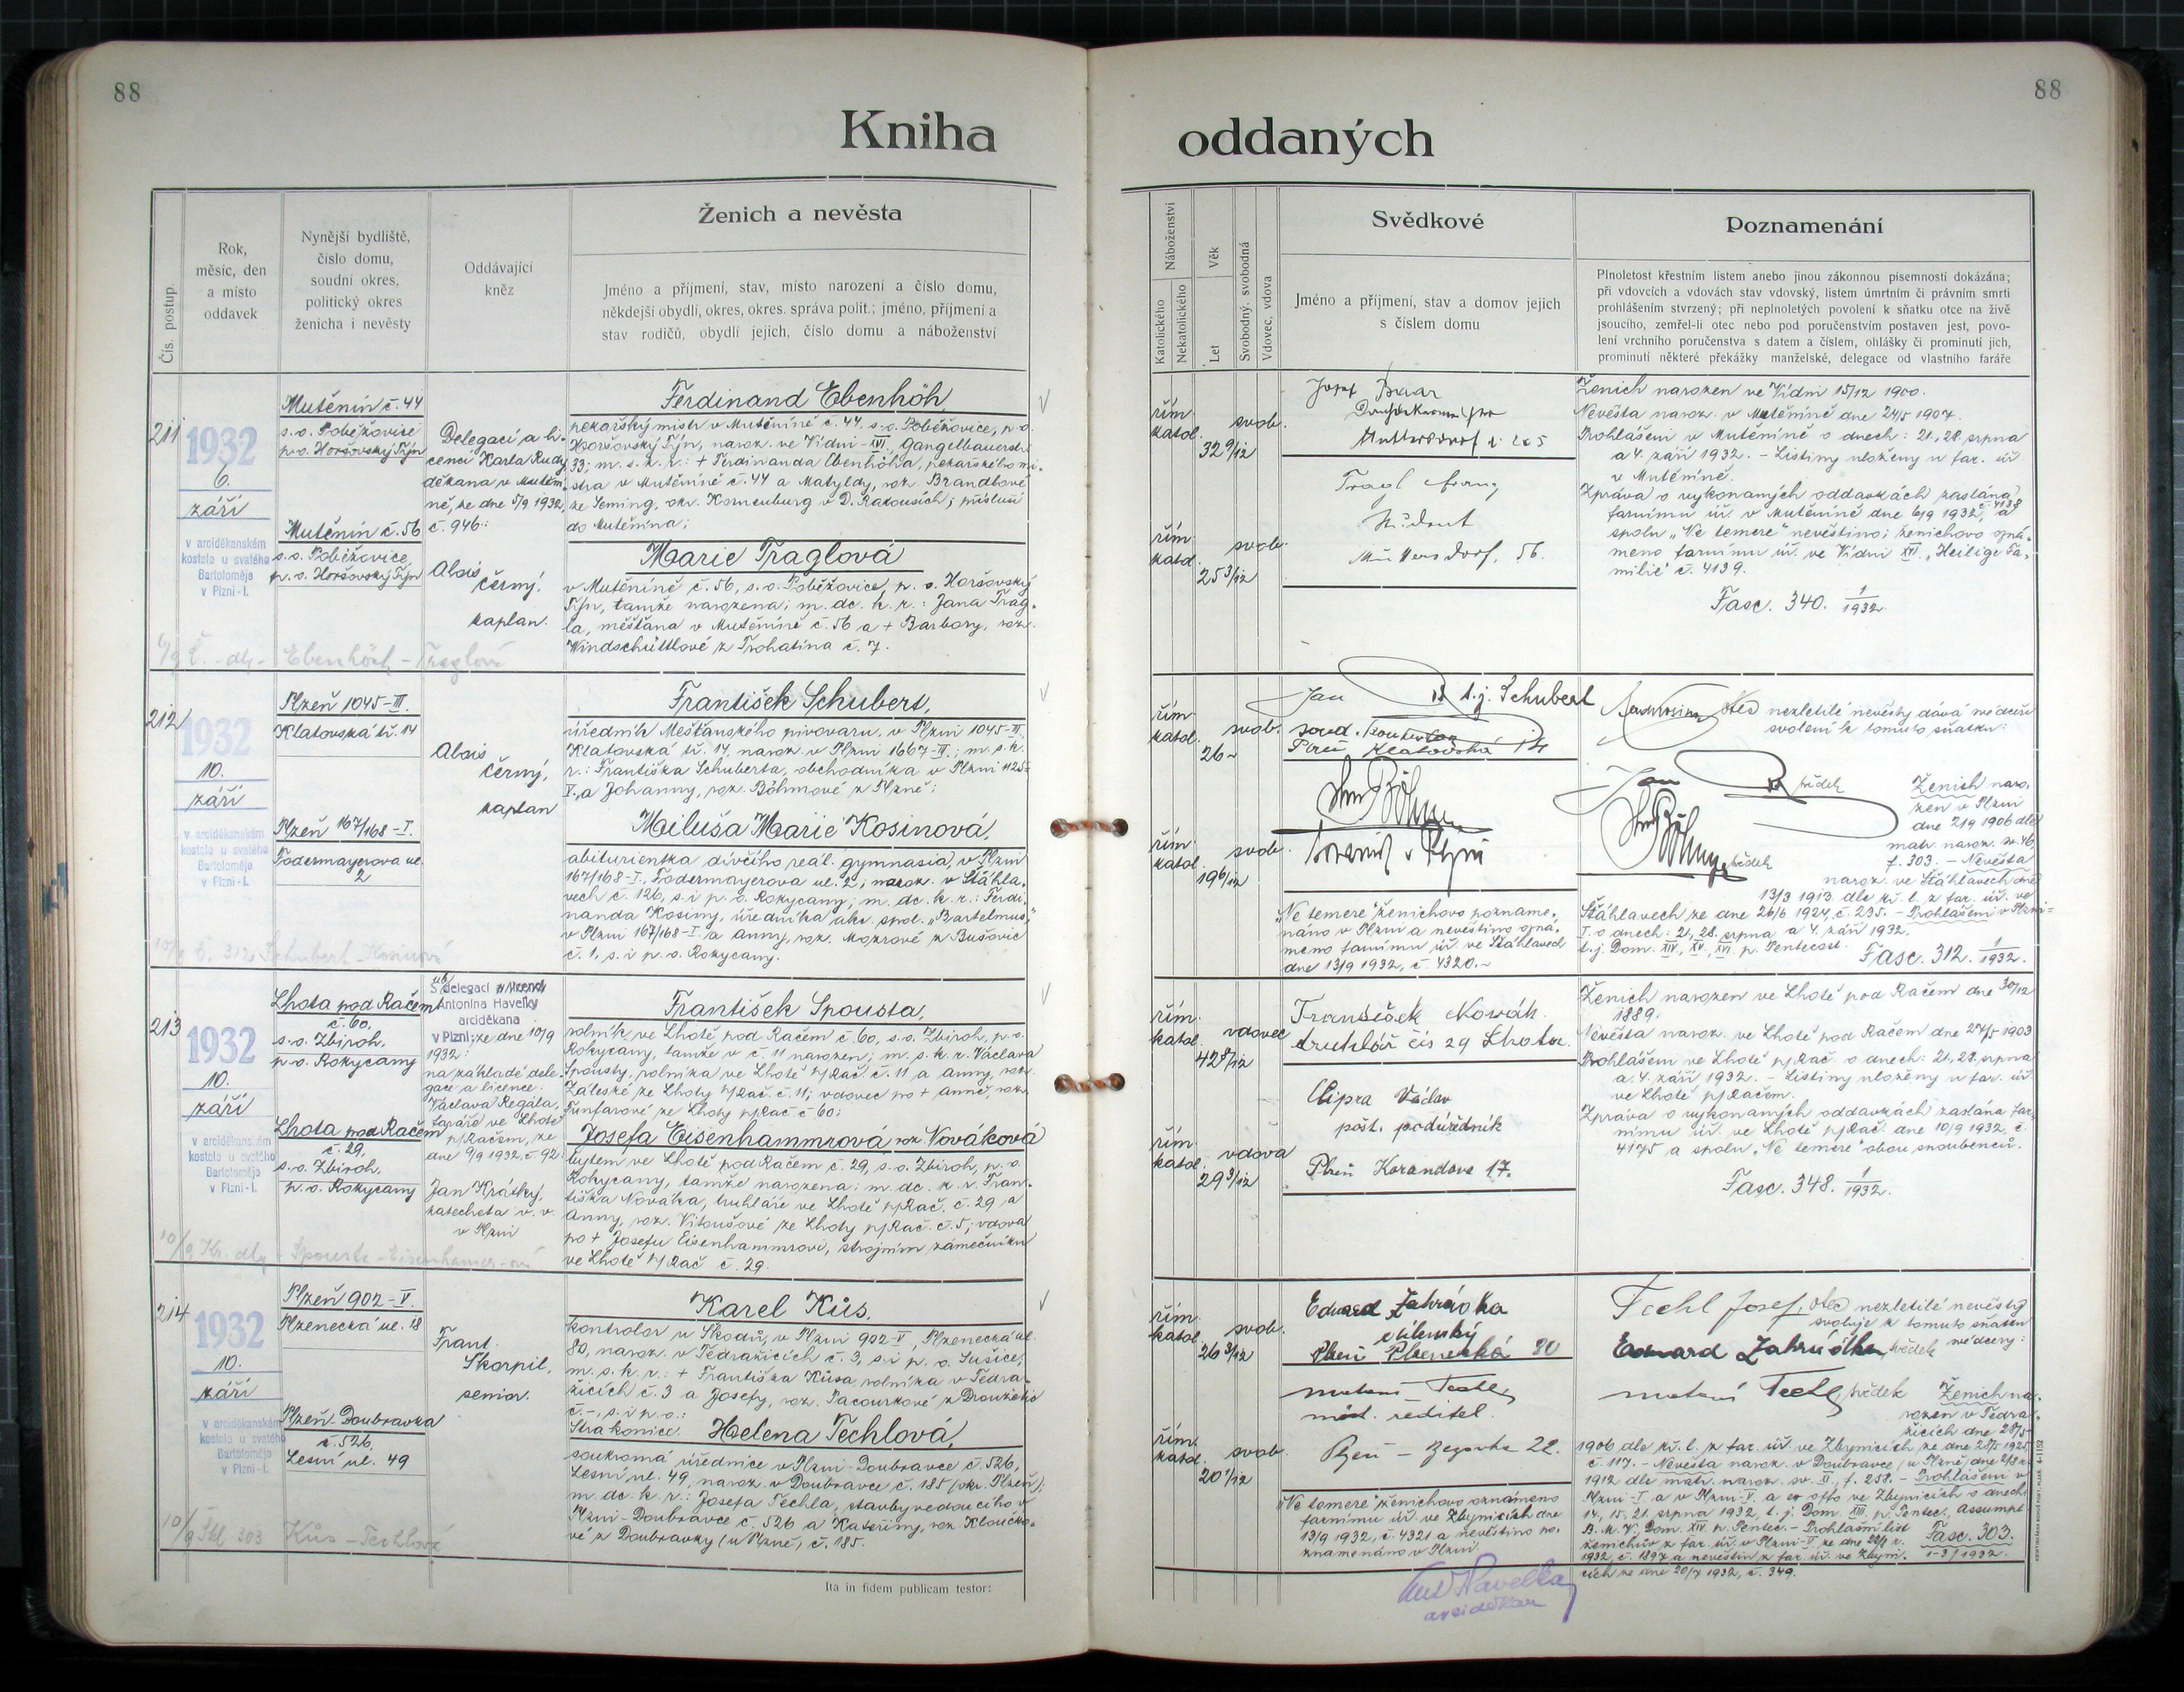 88
88
Kniha
oddaných
Čís. postup.
Rok,
měsíc, den
a místo
oddavek
Nynější bydliště,
číslo domu,
soudní okres,
politický okres
ženicha i nevěsty
Oddávající
kněz
Ženich a nevěsta
Jméno a příjmení, stav, místo narození a číslo domu,
někdejší obydlí, okres, okres. správa polit.; jméno, příjmení a
stav rodičů, obydlí jejich, číslo domu a náboženství
Náboženství
Katolického
Nekatolického
Věk
Let
Svobodný, svobodná
Vdovec, vdova
Svědkové
Jméno a příjmení, stav a domov jejich
s číslem domu
Poznamenání
Plnoletost křestním listem anebo jinou zákonnou písemností dokázána;
při vdovcích a vdovách stav vdovský, listem úmrtním či právním smrti
prohlášením stvrzený; při neplnoletých povolení k sňatku otce na živě
jsoucího, zemřel-li otec nebo pod poručenstvím postaven jest, povo-
lení vrchního poručenstva s datem a číslem, ohlášky či prominutí jich,
prominutí některé překážky manželské, delegace od vlastního faráře
211
1932
6.
září
v arciděkanském
kostele u svatého
Bartoloměje
v Plzni-I.
Mutěnín č. 44
s. o. Poběžovice
p. o. Horšovský Týn
Mutěnín č. 56
s. o. Poběžovice
p. o. Horšovský Týn
Delegací a li-
cencí Karla Rudy
děkana v Mutění-
ně, ze dne 5/9 1932,
č. 946:
Alois
Černý,
kaplan.
Ferdinand Ebenhöh,
pekařský mistr v Mutěníně č. 44, s. o. Poběžovice, p. o.
Horšovský Týn, naroz. ve Vídni-XVI, Gangelbauerstr.
33; m. s. k. r.: + Ferdinanda Ebenhöha, pekařského mi-
stra v Mutěníně č. 44 a Matyldy, roz. Brandlové
ze Seming, okr. Korneuburg v D. Rakousích; přísluší
do Mutěnína;
Marie Traglová
v Mutěníně č. 56, s. o. Poběžovice, p. o. Horšovský
Týn, tamže narozena; m. dc. k. r.: Jana Trag-
la, měšťana v Mutěníně č. 56 a + Barbory, roz.
Windschüttlové z Trohatína č. 7.
Ebenhöh - Traglová
řím.
katol.
32 9/12
svob.
řím.
katol.
25 3/12
svob.
Josef Baar
Tragl Franz
Student
Muttersdorf, 56.
Ženich narozen ve Vídni 15/12 1900.
Nevěsta naroz. v Mutěníně dne 24/5 1907.
Prohlášeni v Mutěníně o dnech: 21., 28. srpna
a 4. září 1932. - Listiny uloženy u far. úř.
v Mutěníně.
Zpráva o vykonaných oddavkách zaslána
farnímu úř. v Mutěníně dne 6/9 1932, č. 4138 a
spolu „Ne temere" nevěstino; ženichovo ozná-
meno farnímu úř. ve Vídni XVI. „Heilige Fa-
milie" č. 4139.
Fasc. 340. 1/1932.
212
1932
10.
září
v arciděkanském
kostele u svatého
Bartoloměje
v Plzni-I.
Plzeň 1045-III.
Klatovská tř. 14
Plzeň 167/168-I.
Fodermayerova ul.
2
Alois
Černý,
kaplan
František Schubert,
úředník Měšťanského pivovaru, v Plzni 1045-III,
Klatovská tř. 14, naroz. v Plzni 1667-III.; m. s. k.
r.: Františka Schuberta, obchodníka v Plzni 1125-
V. a Johanny, roz. Böhmové z Plzně;
Miluša Marie Kosinová,
abiturientka dívčího reál. gymnasia, v Plzni
167/168-I., Fodermayerova ul. 2; naroz. v Šťáhla-
vech č. 126, s. i p. o. Rokycany; m. dc. k. r.: Ferdi-
nanda Kosiny, úředníka akc. spol. „Bartelmus"
v Plzni 167/168-I. a Anny, roz. Mozrové z Bušovic
č. 1, s. i p. o. Rokycany.
312 Schubert - Kosinová
řím.
katol.
26
svob.
řím.
katol.
19 6/12
svob.
Jan
t. j. Schubert
Plzeň Klatovská 14
Böhm
„Ne temere" ženichovo pozname-
náno v Plzni a nevěstino ozná-
meno farnímu úř. ve Šťáhlavech
dne 13/9 1932, č. 4320.
otec nezletilé nevěsty dává své dceři
svolení k tomuto sňatku:
Jan
svědek
Böhm
svědek
Ženich naro-
zen v Plzni
dne 2/9 1906 dle
matr. naroz. sv. 46,
f. 303. - Nevěsta
naroz. ve Šťáhlavech dne
13/3 1913 dle kř. l. z far. úř. ve
Šťáhlavech ze dne 26/6 1924, č. 235. - Prohlášeni v Plzni-
I. o dnech: 21., 28. srpna a 4. září 1932,
t. j. Dom. XIV., XV., XVI. p. Pentecost.
Fasc. 312. 1/1932.
213
1932
10.
září
v arciděkanském
kostele u svatého
Bartoloměje
v Plzni-I.
Lhota pod Račem
č. 60,
s. o. Zbiroh,
p. o. Rokycany
Lhota pod Račem
č. 29,
s. o. Zbiroh,
p. o. Rokycany
S delegací
Antonína Havelky
arciděkana
v Plzni, ze dne 10/9
1932:
na základě dele-
gace a licence
Václava Regála,
faráře ve Lhotě
p/Račem, ze
dne 9/9 1932, č. 92:
Jan Krátký,
katecheta v. v.
v Plzni
František Spousta,
rolník, ve Lhotě pod Račem č. 60, s. o. Zbiroh, p. o.
Rokycany, tamže v č. 11 narozen; m. s. k. r. Václava
Spousty, rolníka ve Lhotě p/Rač. č. 11 a Anny, roz.
Záleské ze Lhoty p/Rač. č. 11; vdovec po + Anně, roz.
Funfarové ze Lhoty p/Rač. č. 60;
Josefa Eisenhammrová roz. Nováková
bytem ve Lhotě pod Račem č. 29, s. o. Zbiroh, p. o.
Rokycany, tamže narozena; m. dc. k. r. Fran-
tiška Nováka, truhláře ve Lhotě p/Rač. č. 29 a
Anny, roz. Vitoušové ze Lhoty p/Rač. č. 5; vdova
po + Josefu Eisenhammrovi, strojním zámečníku
ve Lhotě p/Rač. č. 29.
Spousta - Eisenhamer-ová
řím.
katol.
42 8/12
vdovec
řím.
katol.
29 3/12
vdova
František Novák
truhlář čís 29 Lhota.
Cipra Václav
pošt. podúředník
Plzeň Korandova 17.
Ženich narozen ve Lhotě pod Račem dne 30/12
1889.
Nevěsta naroz. ve Lhotě pod Račem dne 27/5 1903
Prohlášeni ve Lhotě p/Rač. o dnech: 21., 28. srpna
a 4. září 1932. - Listiny uloženy u far. úř.
ve Lhotě p/Račem.
Zpráva o vykonaných oddavkách zaslána far-
nímu úř. ve Lhotě p/Rač. dne 10/9 1932, č.
4175 a spolu „Ne temere" obou snoubenců.
Fasc. 348. 1/1932.
214
1932
10.
září
v arciděkanském
kostele u svatého
Bartoloměje
v Plzni-I.
Plzeň 902-V.
Plzenecká ul. 18
Plzeň-Doubravka
č. 526,
Lesní ul. 49
Frant.
Škorpil,
senior.
Karel Kůs,
kontrolor u Škodů, v Plzni 902-V, Plzenecká ul.
80, naroz. v Tedražicích č. 3, s. i p. o. Sušice;
m. s. k. r.: + Františka Kůsa, rolníka v Tedra-
žicích č. 3 a Josefy, roz. Pacourkové z Droužetic
č. -, s. i p. o.:
Strakonice.
Helena Techlová,
soukromá úřednice v Plzni-Doubravce č. 526,
Lesní ul. 49, naroz. v Doubravce č. 185 (okr. Plzeň);
m. dc. k. r.: Josefa Techla, stavbyvedoucího v
Plzni-Doubravce č. 526 a Kateřiny, roz. Kloučko-
vé z Doubravky (u Plzně), č. 185.
303 Kůs - Techlová
řím.
katol.
26 3/12
svob.
řím.
katol.
20 1/12
svob.
Eduard Zahrádka
Plzeň Plzenecká 80
měst. ředitel.
Plzeň - 22.
„Ne temere" ženichovo oznámeno
farnímu úř. ve Zbynicích dne
13/9 1932, č. 4321 a nevěstino po-
znamenáno v Plzni.
Techl Josef, otec nezletilé nevěsty
svoluje k tomuto sňatku
své dcery:
Eduard Zahrádka, svědek
svědek
Ženich na-
rozen v Tedra-
žicích dne 28/5
1906 dle kř. l. z far. úř. ve Zbynicích ze dne 28/5 1925,
č. 117. - Nevěsta naroz. v Doubravce (u Plzně) dne 2/8
1912 dle matr. naroz. sv. XI, f. 258. - Prohlášeni v
Plzni-I a v Plzni-V. a ex offo ve Zbynicích o dnech
14., 15., 21. srpna 1932, t. j. Dom. XIII. p. Pentec., Assumpt.
B. M. V., Dom. XIV. p. Pentec. - Prohlášní list
ženichův z far. úř. v Plzni-V, ze dne
1932, č. 1897 a nevěstin z far. úř. ve Zbyni-
cích ze dne 20/7 1932, č. 349.
Fasc. 303.
1-3/1932.
Ita in fidem publicam testor:
Ant Havelka
arciděkan